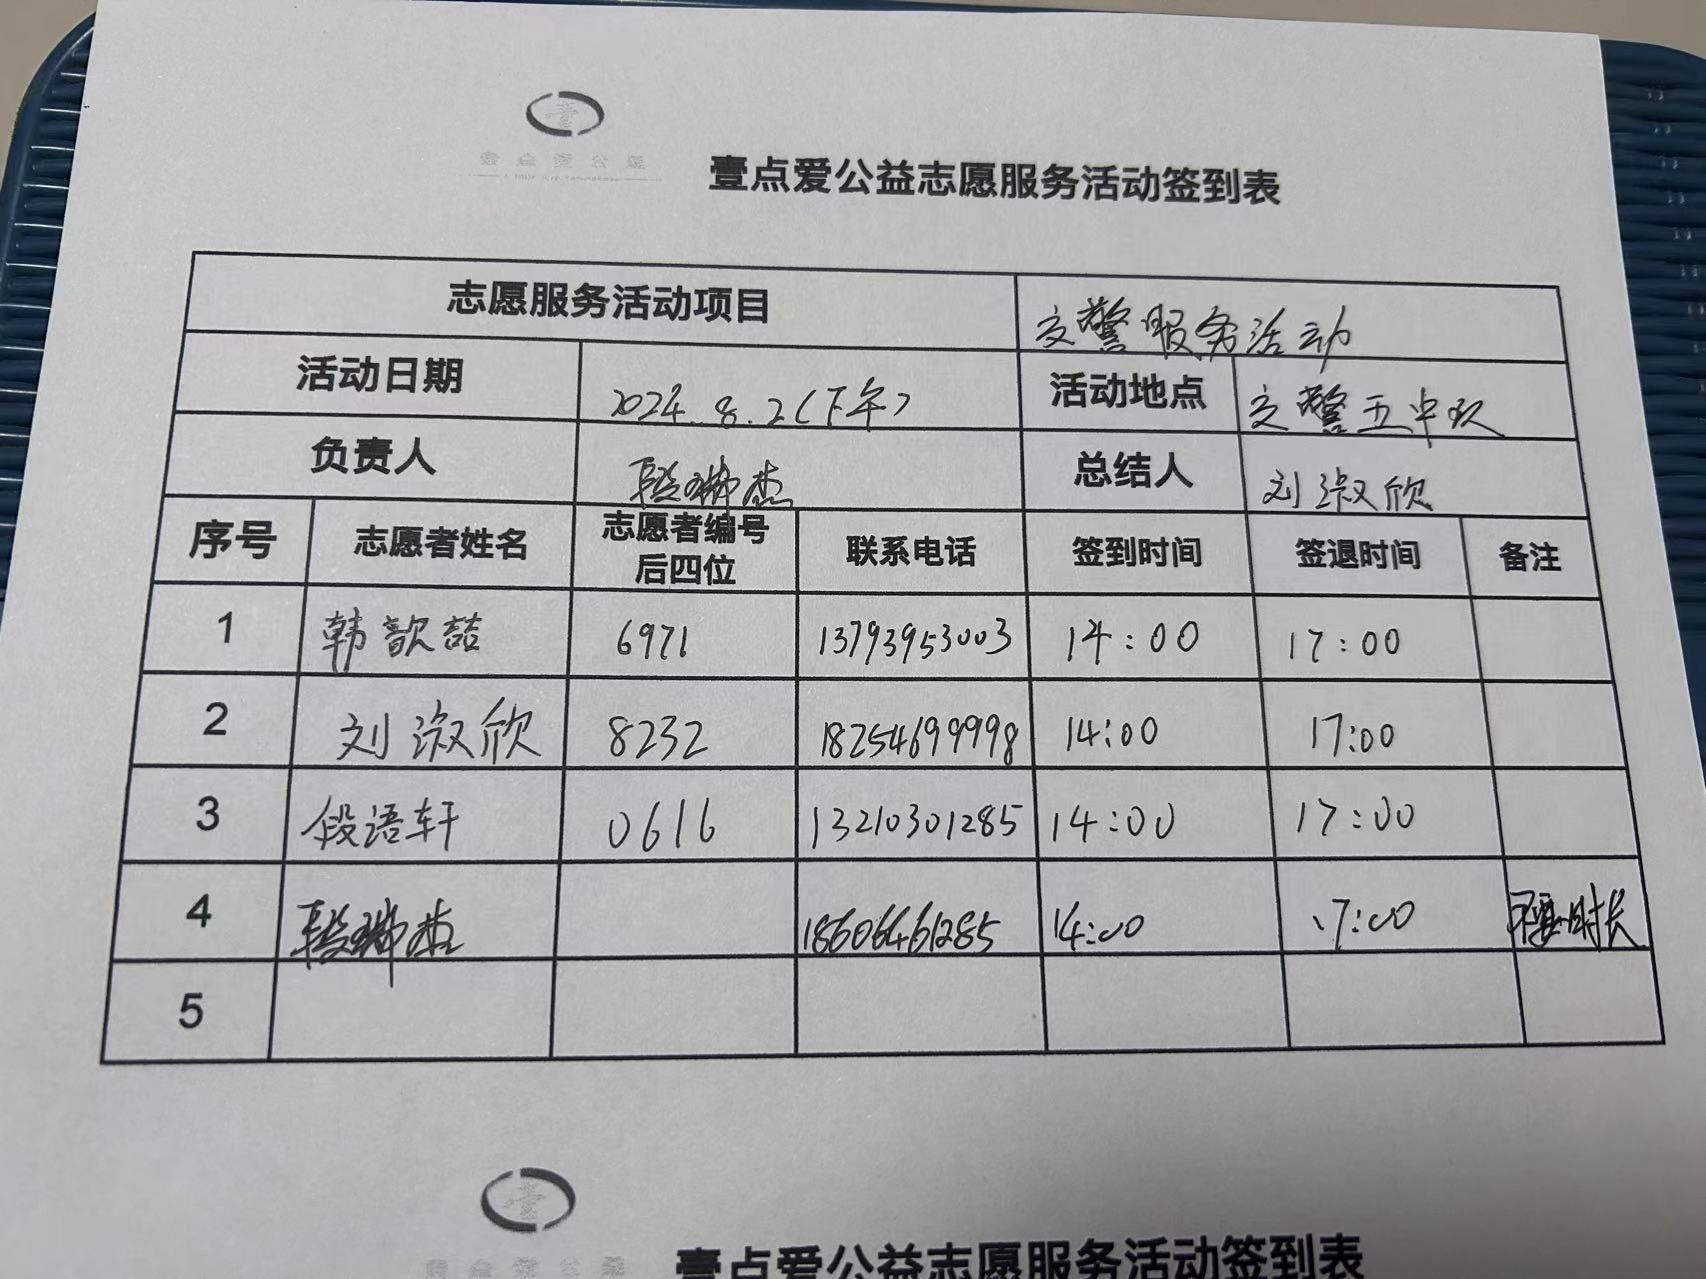 壹点爱公益
壹点爱公益志愿服务活动签到表
志愿服务活动项目 交警服务活动
活动日期 2024.8.2(下午) 活动地点 交警五中队
负责人 段琳杰 总结人 刘淑欣
序号 志愿者姓名 志愿者编号后四位 联系电话 签到时间 签退时间 备注
1 韩歆喆 6971 13793953003 14:00 17:00
2 刘淑欣 8232 18254699998 14:00 17:00
3 段语轩 0616 13210301285 14:00 17:00
4 段琳杰 18606461285 14:00 17:00 不要时长
5
壹点爱公益
壹点爱公益志愿服务活动签到表